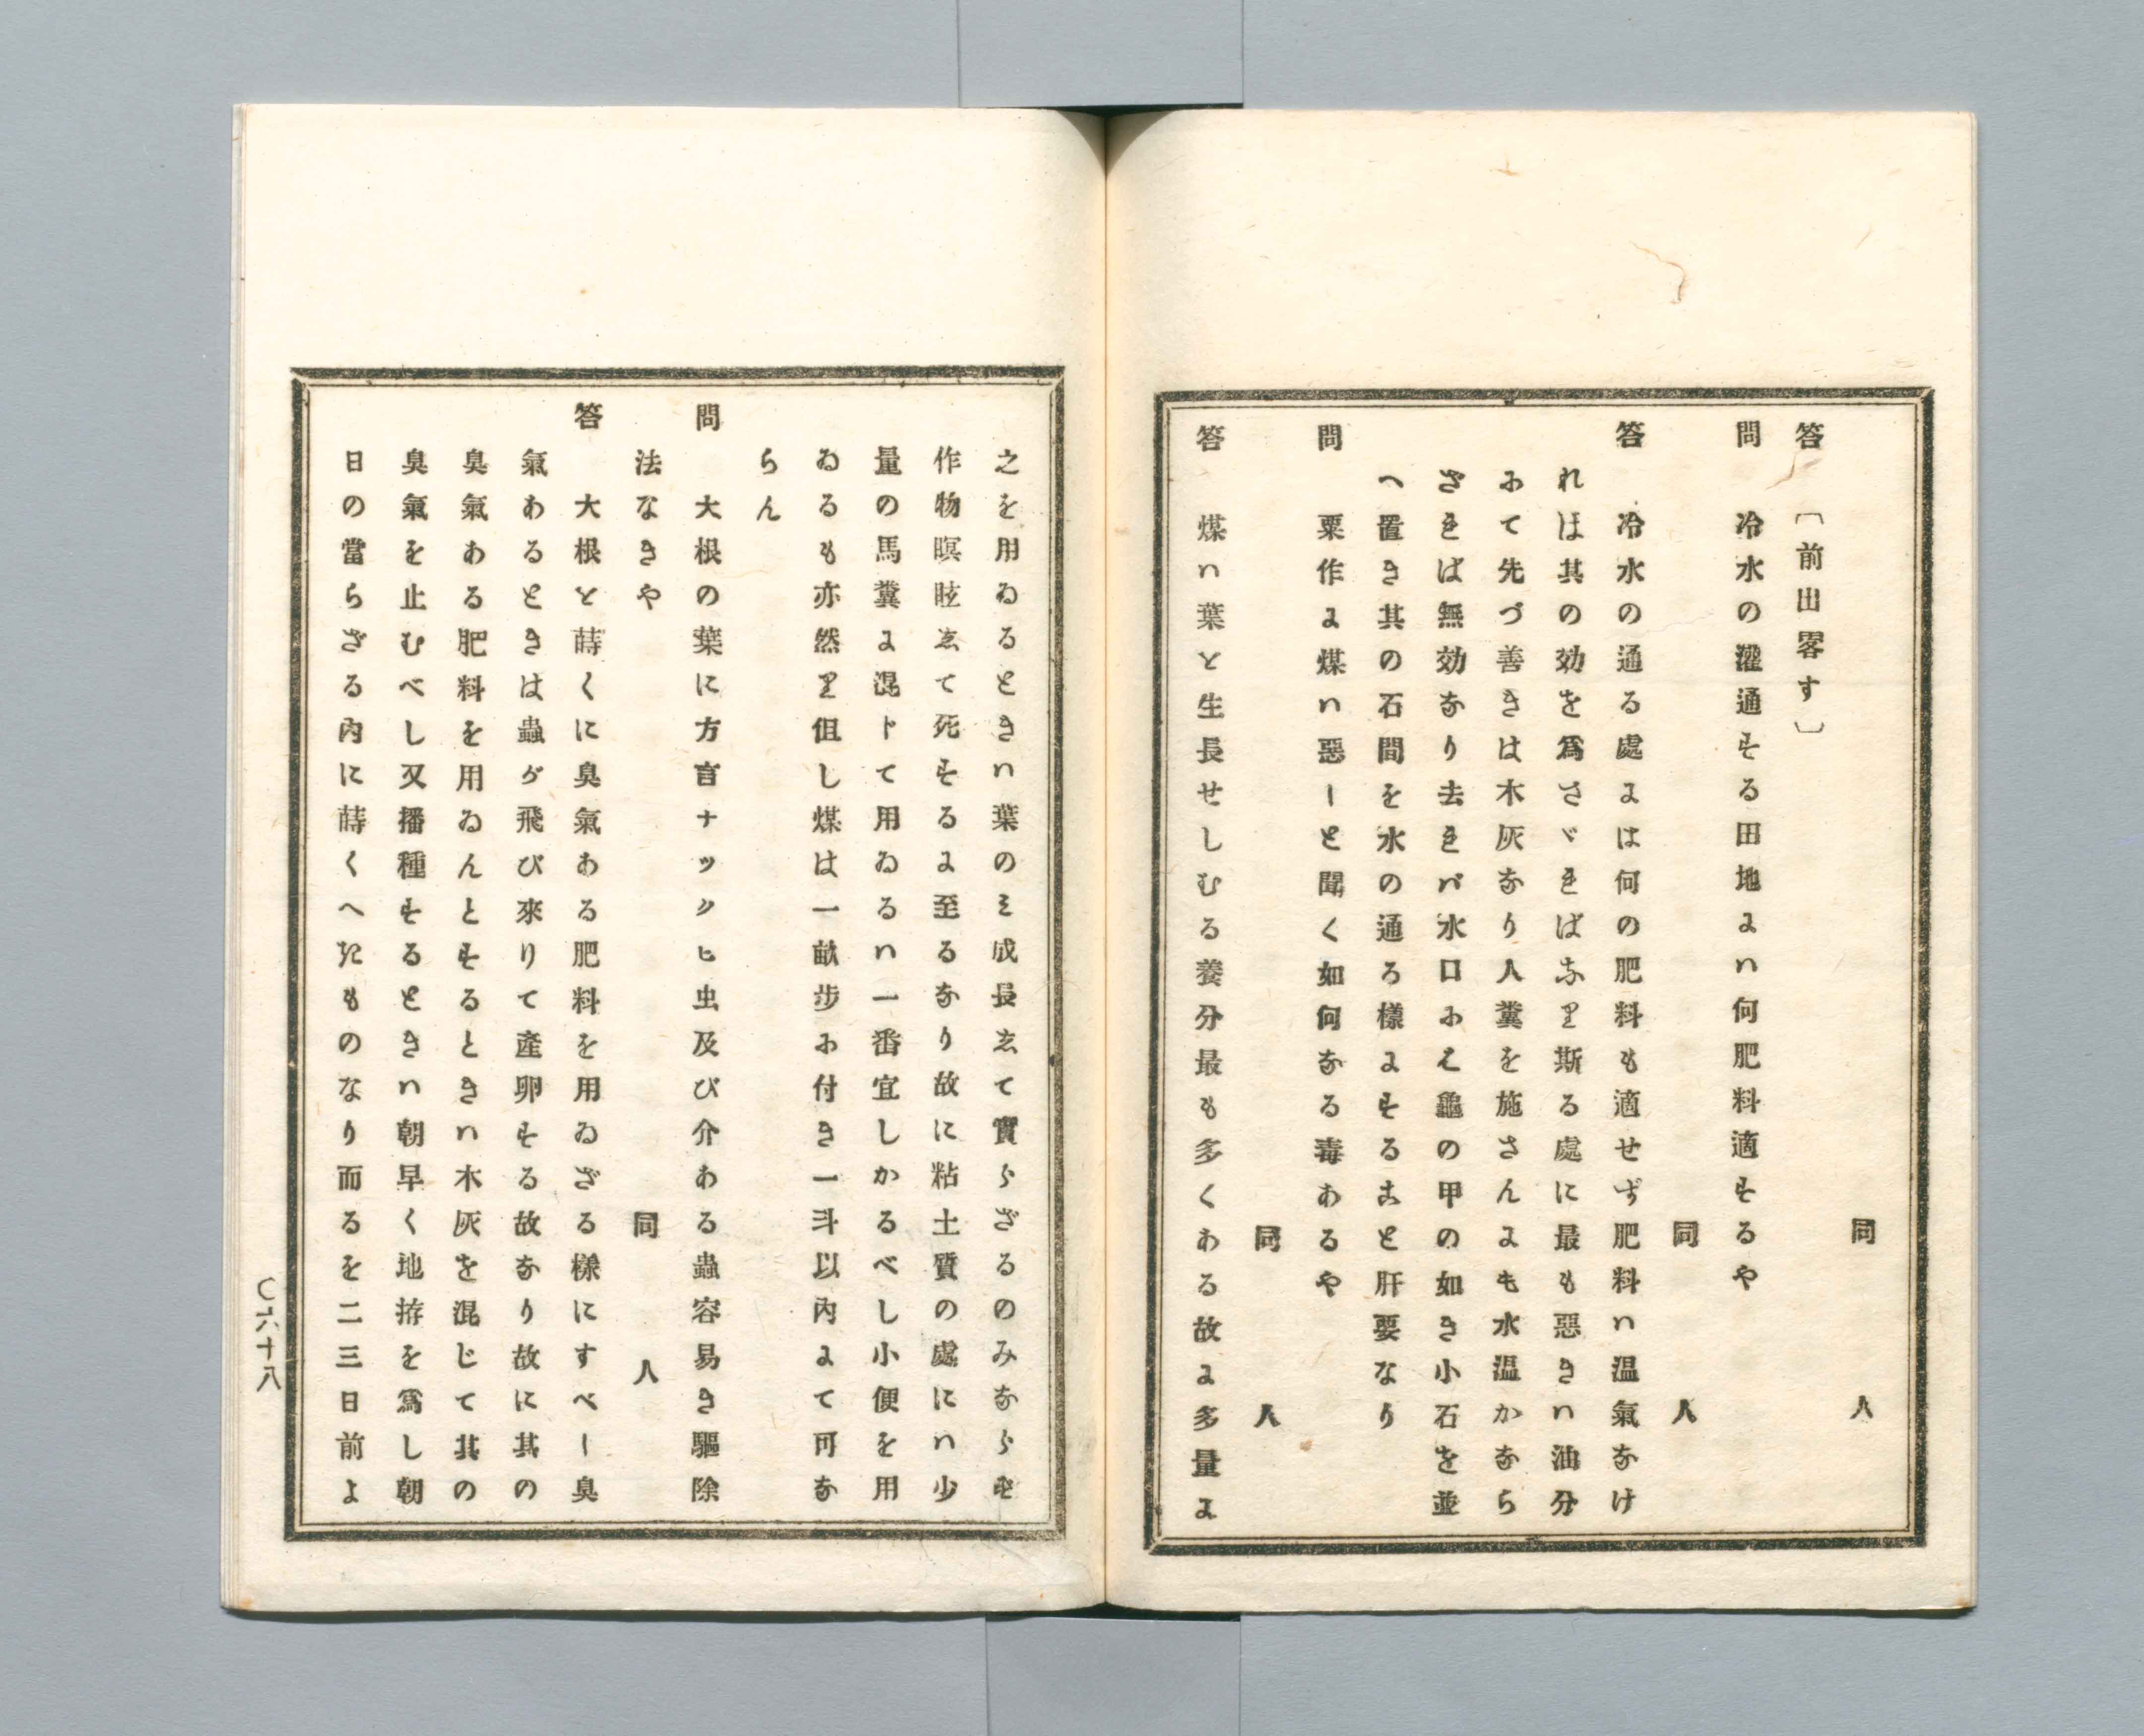 同　人
答　〔前出畧す〕
問　冷水の灌通する田地よハ何肥料適するや
同　人
答　冷水の通る處よは何の肥料も適せず肥料ハ温氣なけ
れは其の効を爲さゞればなり斯る處に最も惡きハ油分
にて先づ善きは木灰なり人糞を施さんよも水温かなら
ざれば無効なり去れバ水口にハ龜の甲の如き小石を並
へ置き其の石間を水の通る樣よすること肝要なり
問　粟作よ煤ハ惡しと聞く如何なる毒あるや
同　人
答　煤ハ葉を生長せしむる養分最も多くある故よ多量よ
之を用ゐるときハ葉のミ成長して實らざるのみならず
作物瞑眩して死するよ至るなり故に粘土質の處にハ少
量の馬糞よ混トて用ゐるハ一番宜しかるべし小便を用
ゐるも亦然り但し煤は一畝步に付き一斗以內よて可な
らん
問　大根の葉に方言ナックヒ虫及び介わる蟲容易き驅除
法なきや　同　人
答　大根を蒔くに臭氣ある肥料を用ゐざる樣にすべし臭
氣あるときは蟲が飛び來りて產卵する故なり故に其の
臭氣ある肥料を用ゐんとするときハ木灰を混じて其の
臭氣を止むべし又播種するときハ朝早く地拵を爲し朝
日の當らざる內に蒔くへきものなり而るを二三日前よ
〇六十八